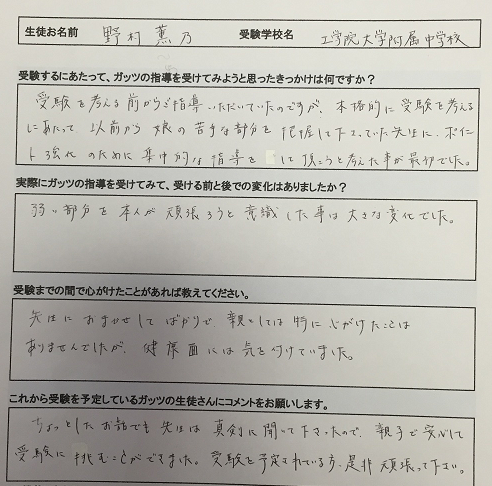 生徒お名前 野村 薫乃 受験学校名 工学院大学附属中学校
受験するにあたって、ガッツの指導を受けてみようと思ったきっかけは何ですか?
受験を考える前からご指導いただいていたのですが、本格的に受験を考える
にあたって以前から娘の苦手な部分を把握して下さっていた先生に、ポイン
ト強化のために集中的な指導をして頂こうと考えた事が最初でした。
実際にガッツの指導を受けてみて、受ける前と後での変化はありましたか?
弱い部分を本人が頑張ろうと意識した事は大きな変化でした。
受験までの間で心がけたことがあれば教えてください。
先生におまかせしてばかりで、親としては特に心がけたことは
ありませんでしたが、健康面には気を付けていました。
これから受験を予定しているガッツの生徒さんにコメントをお願いします。
ちょっとしたお話でも先生は真剣に聞いて下さったので、親子で安心して
受験に挑むことができました。受験を予定されている方、是非頑張って下さい。